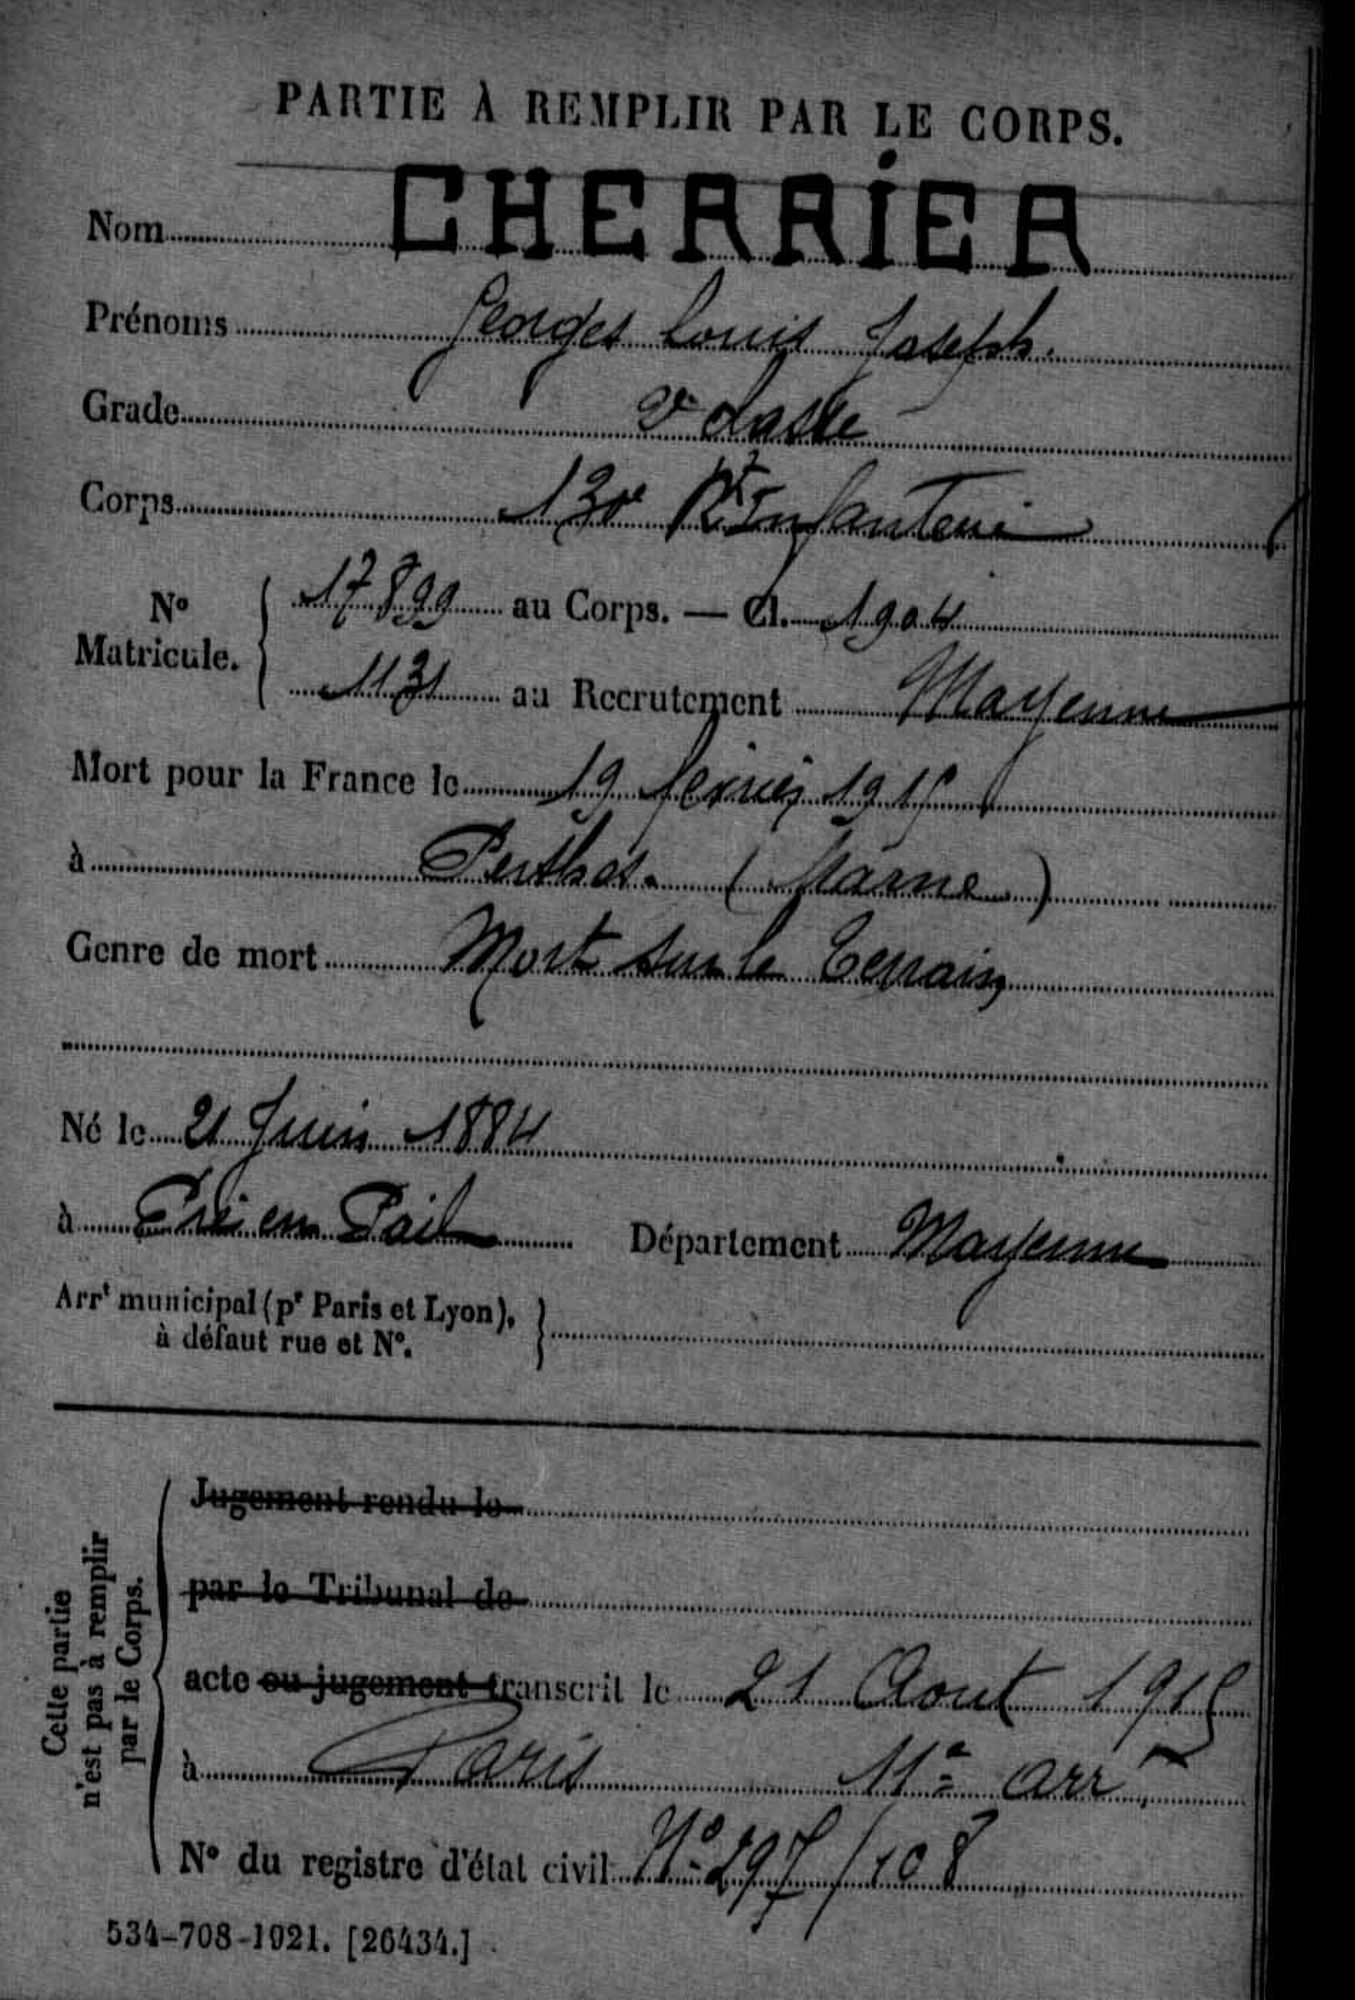 PARTIE À REMPLIR PAR LE CORPS.
Nom CHERRIER
Prénoms Georges Louis Joseph.
Grade 2e classe
Corps 130e Rt Infanterie
No Matricule. 17899 au Corps. — Cl. 1904
1131 au Recrutement Mayenne
Mort pour la France le 19 février 1915
à Perthes. (Marne)
Genre de mort Mort sur le Terrain
Né le 21 Juin 1884
à Pré en Pail Département Mayenne
Arrt municipal (pr Paris et Lyon),
à défaut rue et No.
Cette partie
n'est pas à remplir
par le Corps.
Jugement rendu le
par le Tribunal de
acte ou jugement transcrit le 21 Aout 1915
à Paris 11e arrt
No du registre d'état civil No 297/108
534-708-1921. [26434.]